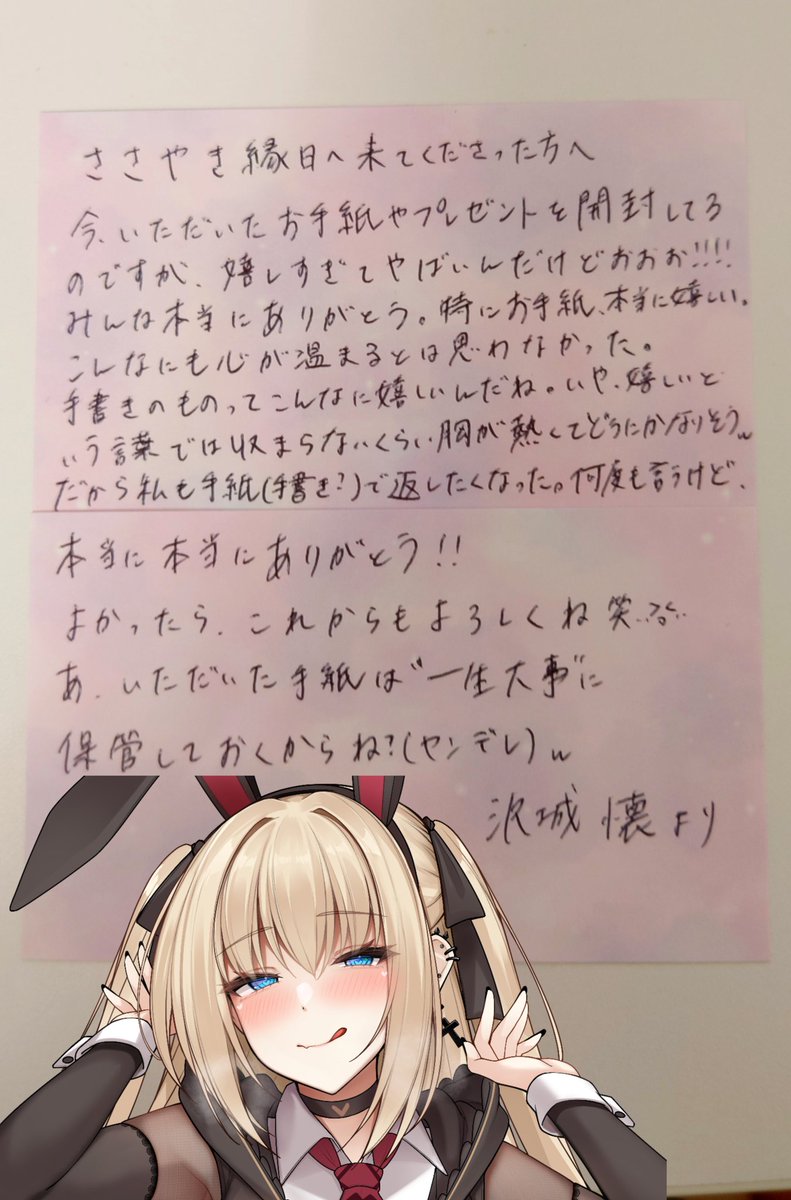 ささやき縁日へ来てくださった方へ
今、いただいたお手紙やプレゼントを開封してる
のですが、嬉しすぎてやばいんだけどおおお!!!!
みんな本当にありがとう。特にお手紙、本当に嬉しい。
こんなにも心が温まるとは思わなかった。
手書きのものってこんなに嬉しいんだね。いや、嬉しいと
いう言葉では収まらないくらい胸が熱くてどうにかなりそうw
だから私も手紙(手書き?)で返したくなった。何度も言うけど、
本当に本当にありがとう!!
よかったら、これからもよろしくね笑
あ、いただいた手紙は"一生大事"に
保管しておくからね?(ヤンデレ)w
沢城 懐より